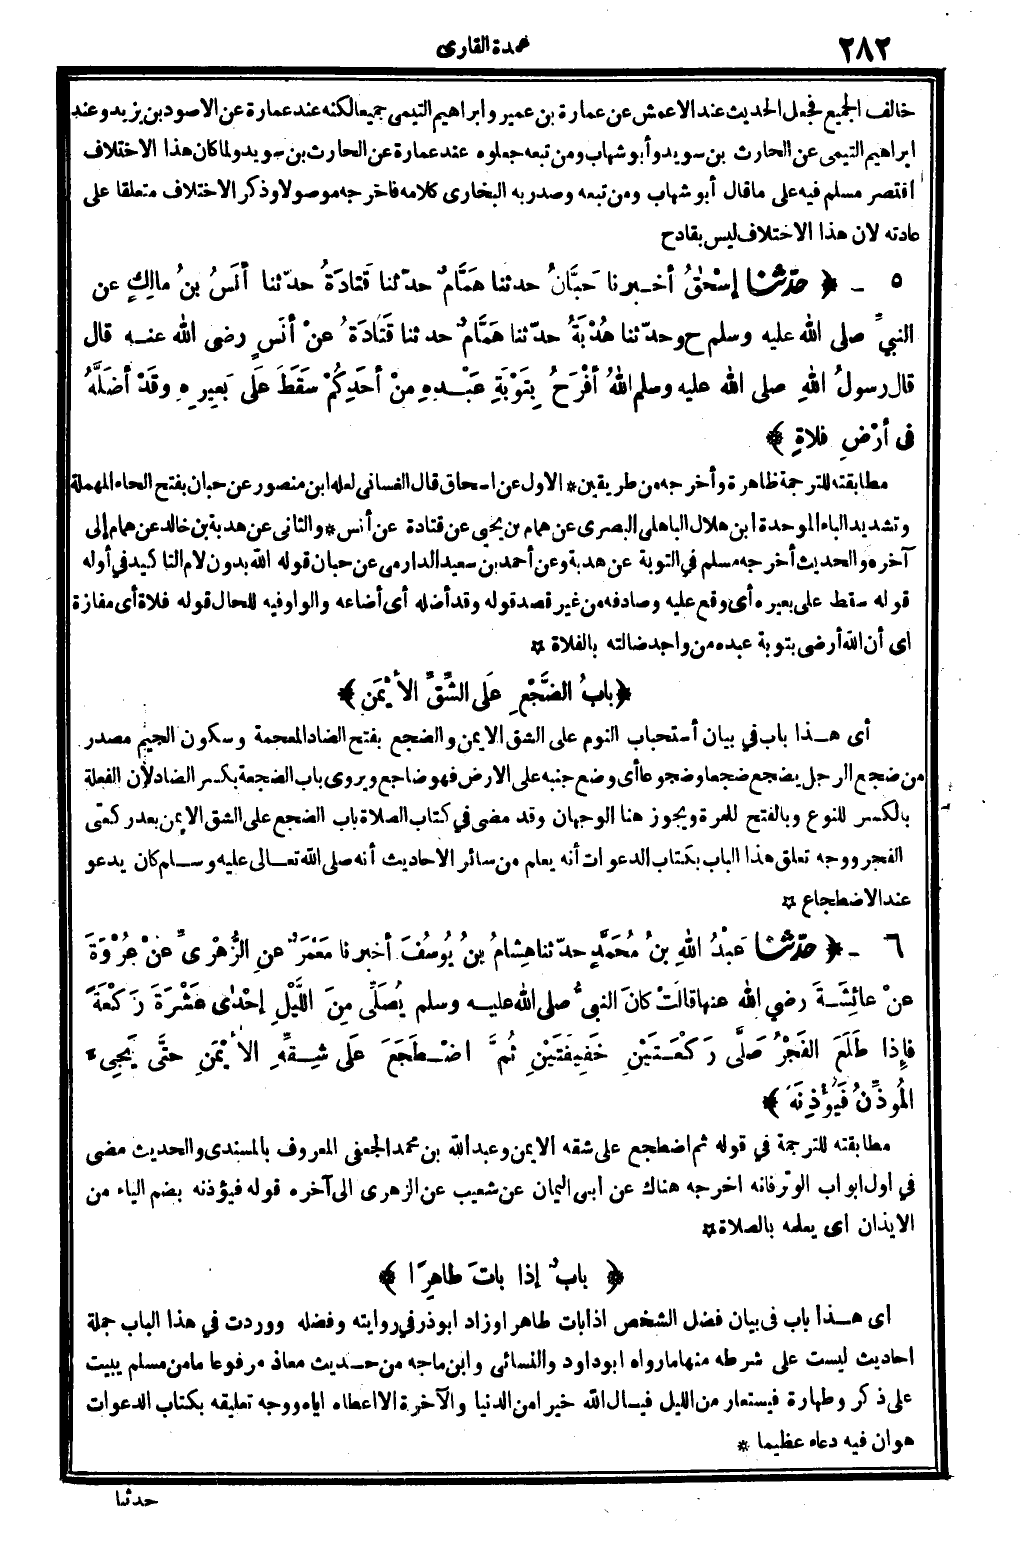 ٢٨٢
عمدة القارى
خالف الجميع فجعل الحديث عند الاعمش عن عمارة بن عمير وابراهيم التيمى جميعا لكنه عند عمارة عن الاسود بن يزيد وعند
ابراهيم التيمى عن الحارث بن سويد وأبو شهاب ومن تبعه جعلوه عند عمارة عن الحارث بن سويد ولما كان هذا الاختلاف
اقتصر مسلم فيه على ماقال أبو شهاب ومن تبعه وصدر به البخارى كلامه فاخرجه موصولا وذكر الاختلاف متعلقا على
عادته لان هذا الاختلاف ليس بقادح
٥ - ﴿ حَدَّثَنَا إِسْحٰقُ أخبرنا حَبَّانُ حدثنا هَمَّامٌ حدّثنا قَتَادَةُ حدّثنا أنَسُ بنُ مالِكٍ عن
النبيِّ صلى الله عليه وسلم ح وحدّثنا هُدْبَةُ حدّثنا هَمَّامٌ حدثنا قَتَادَةُ عنْ أنَسٍ رضى الله عنه قال
قال رسولُ اللهِ صلى الله عليه وسلم اللهُ أفْرَحُ بِتَوْبَةِ عَبْدِهِ مِنْ أحَدِكُمْ سَقَطَ عَلَى بَعِيرِهِ وقَدْ أضَلَّهُ
فى أرْضِ فلاةٍ ﴾
مطابقته للترجمة ظاهرة وأخرجه من طريقين * الاول عن اسحاق قال الغسانى لعله ابن منصور عن حبان بفتح الحاء المهملة
وتشديد الباء الموحدة ابن هلال الباهلى البصرى عن همام بن يحيى عن قتادة عن أنس * والثانى عن هدبة بن خالد عن همام إلى
آخره والحديث أخرجه مسلم في التوبة عن هدبة وعن أحمد بن سعيد الدارمى عن حبان قوله الله بدون لام التاكيد في أوله
قوله سقط على بعيره أى وقع عليه وصادفه من غير قصد قوله وقد أضله أى أضاعه والواو فيه للحال قوله فلاة أى مفازة
اى أن الله أرضى بتوبة عبده من واجد ضالته بالفلاة *
﴿ بابُ الضَّجْعِ عَلَى الشِّقِّ الأيْمَنِ ﴾
أى هذا باب في بيان أستحباب النوم على الشق الايمن والضجع بفتح الضاد المعجمة وسكون الجيم مصدر
من ضجع الرجل يضجع ضجعا وضجوعا أى وضع جنبه على الارض فهو ضاجع ويروى باب الضجعة بكسر الضاد لأن الفعلة
بالكسر للنوع وبالفتح للمرة ويجوز هنا الوجهان وقد مضى في كتاب الصلاة باب الضجع على الشق الايمن بعد ركعتى
الفجر ووجه تعلق هذا الباب بكتاب الدعوات أنه يعلم من سائر الاحاديث أنه صلى الله تعالى عليه وسلم كان يدعو
عند الاضطجاع *
٦ - ﴿ حَدَّثَنَا عَبْدُ اللهِ بنُ مُحَمَّدٍ حدّثنا هِشامُ بنُ يُوسُفَ أخبرنا مَعْمَرٌ عنِ الزُّهْرِىِّ عنْ عُرْوَةَ
عنْ عائِشَةَ رضي الله عنها قالَتْ كانَ النبيُّ صلى الله عليه وسلم يُصَلِّى مِنَ اللَّيْلِ إحْدٰى عَشْرَةَ رَكْعَةً
فإذا طَلَعَ الفَجْرُ صَلَّى رَكْعَتَيْنِ خَفِيفَتَيْنِ ثُمَّ اضْطَجَعَ عَلَى شِقِّهِ الأيْمَنِ حتَّى يَجِىءَ
المُوذِّنُ فَيُؤْذِنَهُ ﴾
مطابقته للترجمة في قوله ثم اضطجع على شقه الايمن وعبدالله بن محمد الجعفى المعروف بالمسندى والحديث مضى
في اول ابواب الوتر فانه اخرجه هناك عن ابى اليمان عن شعيب عن الزهرى الى آخره قوله فيؤذنه بضم الياء من
الايذان اى يعلمه بالصلاة *
﴿ بابٌ إذا باتَ طاهِرًا ﴾
اى هذا باب فى بيان فضل الشخص اذا بات طاهرا وزاد ابوذر في روايته وفضله ووردت في هذا الباب جملة
احاديث ليست على شرطه منها مارواه ابو داود والنسائى وابن ماجه من حديث معاذ مرفوعا مامن مسلم يبيت
على ذكر وطهارة فيستعار من الليل فيسال الله خيرا من الدنيا والآخرة الا اعطاه اياه ووجه تعليقه بكتاب الدعوات
هو ان فيه دعاء عظيما *
حدثنا